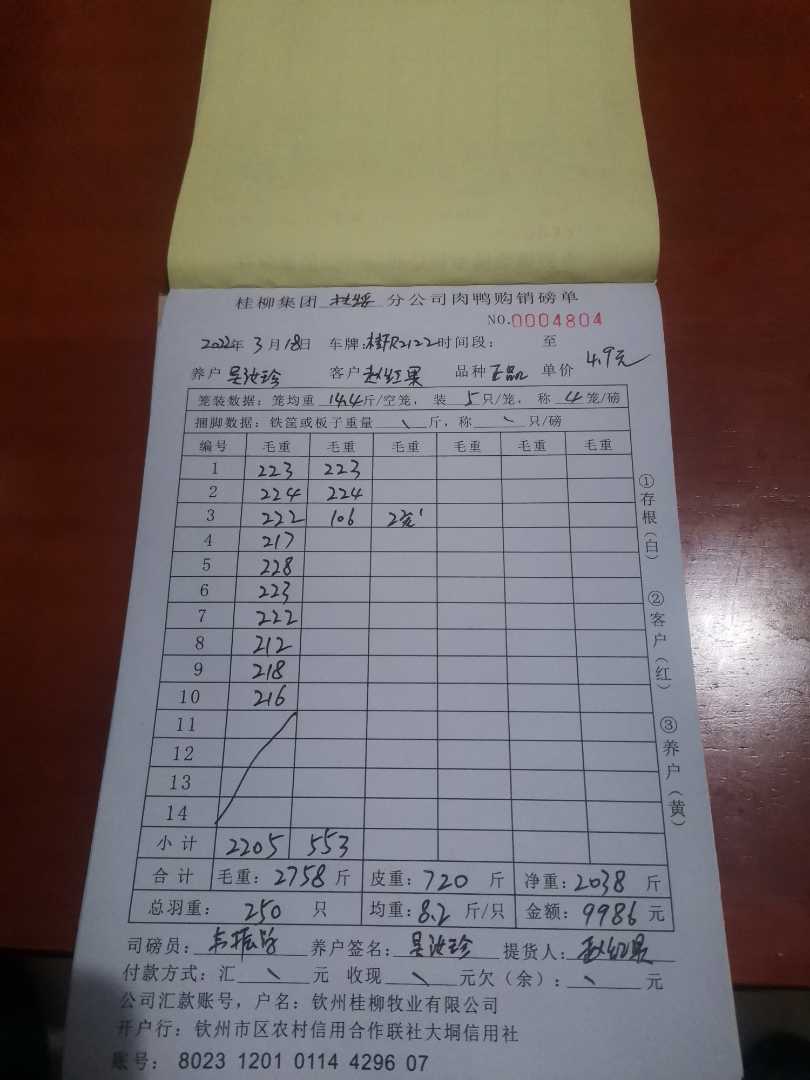 桂柳集团 分公司肉鸭购销磅单
NO.0004804
2022年 3月18日 车牌:桂R2122 时间段: 至
养户 吴汝珍 客户 赵红果 品种 正品 单价 4.9元
笼装数据：笼均重 14.4 斤/空笼， 装 5 只/笼， 称 4 笼/磅
捆脚数据：铁筐或板子重量 \ 斤，称 \ 只/磅
编号 毛重 毛重 毛重 毛重 毛重 毛重
1 223 223
2 224 224
3 222 106 2笼
4 217
5 228
6 223
7 222
8 212
9 218
10 216
11
12
13
14
小计 2205 553
合计 毛重：2758 斤 皮重：720 斤 净重：2038 斤
总羽重： 250 只 均重：8.2 斤/只 金额：9986 元
司磅员： 养户签名：吴汝珍 提货人：赵红果
付款方式：汇 \ 元 收现 \ 元欠（余）：\ 元
公司汇款账号，户名：钦州桂柳牧业有限公司
开户行：钦州市区农村信用合作联社大垌信用社
账号： 8023 1201 0114 4296 07
①存根（白）
②客户（红）
③养户（黄）